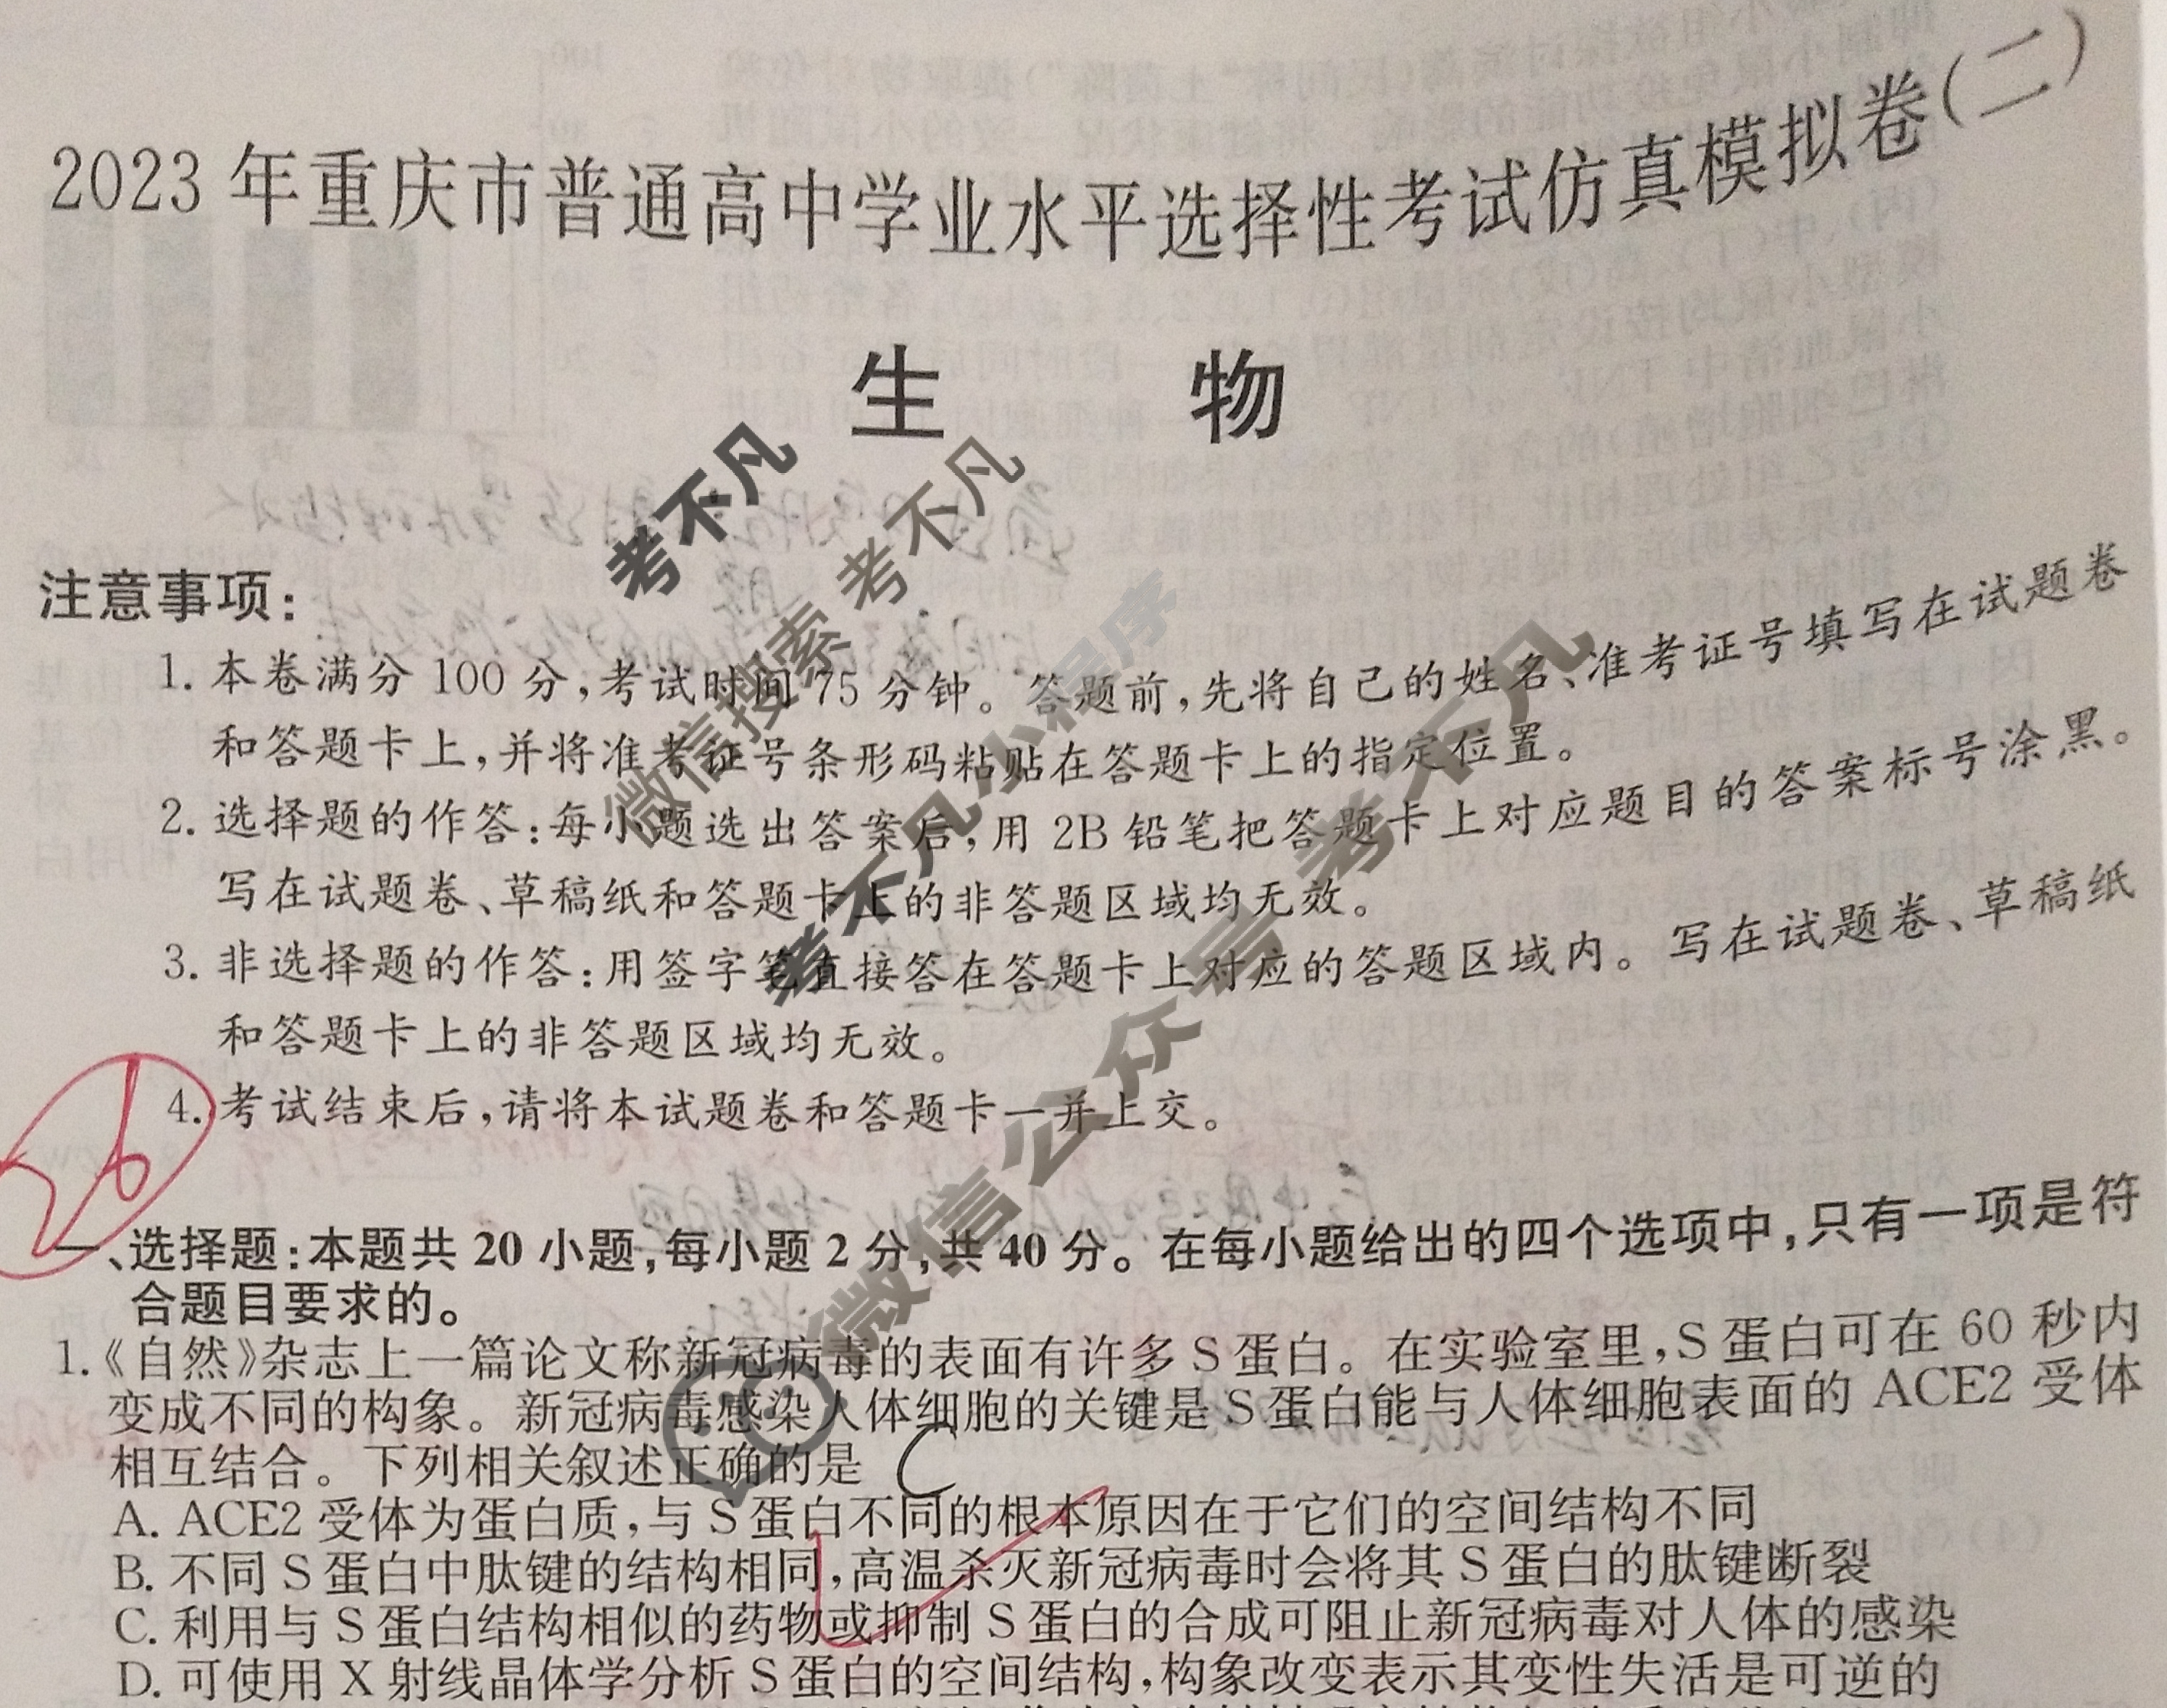 2023年重庆市普通高中学业水平选择性考试仿真模拟卷(二)
生 物
考不凡
微信搜索 考不凡
考不凡小程序
微信公众号 考不凡
注意事项:
1. 本卷满分100分,考试时间75分钟。答题前,先将自己的姓名、准考证号填写在试题卷
和答题卡上,并将准考证号条形码粘贴在答题卡上的指定位置。
2. 选择题的作答:每小题选出答案后,用2B铅笔把答题卡上对应题目的答案标号涂黑。
写在试题卷、草稿纸和答题卡上的非答题区域均无效。
3. 非选择题的作答:用签字笔直接答在答题卡上对应的答题区域内。写在试题卷、草稿纸
和答题卡上的非答题区域均无效。
4. 考试结束后,请将本试题卷和答题卡一并上交。
26
一、选择题:本题共20小题,每小题2分,共40分。在每小题给出的四个选项中,只有一项是符
合题目要求的。
1.《自然》杂志上一篇论文称新冠病毒的表面有许多S蛋白。在实验室里,S蛋白可在60秒内
变成不同的构象。新冠病毒感染人体细胞的关键是S蛋白能与人体细胞表面的ACE2受体
相互结合。下列相关叙述正确的是 C
A. ACE2受体为蛋白质,与S蛋白不同的根本原因在于它们的空间结构不同
B. 不同S蛋白中肽键的结构相同,高温杀灭新冠病毒时会将其S蛋白的肽键断裂
C. 利用与S蛋白结构相似的药物或抑制S蛋白的合成可阻止新冠病毒对人体的感染
D. 可使用X射线晶体学分析S蛋白的空间结构,构象改变表示其变性失活是可逆的